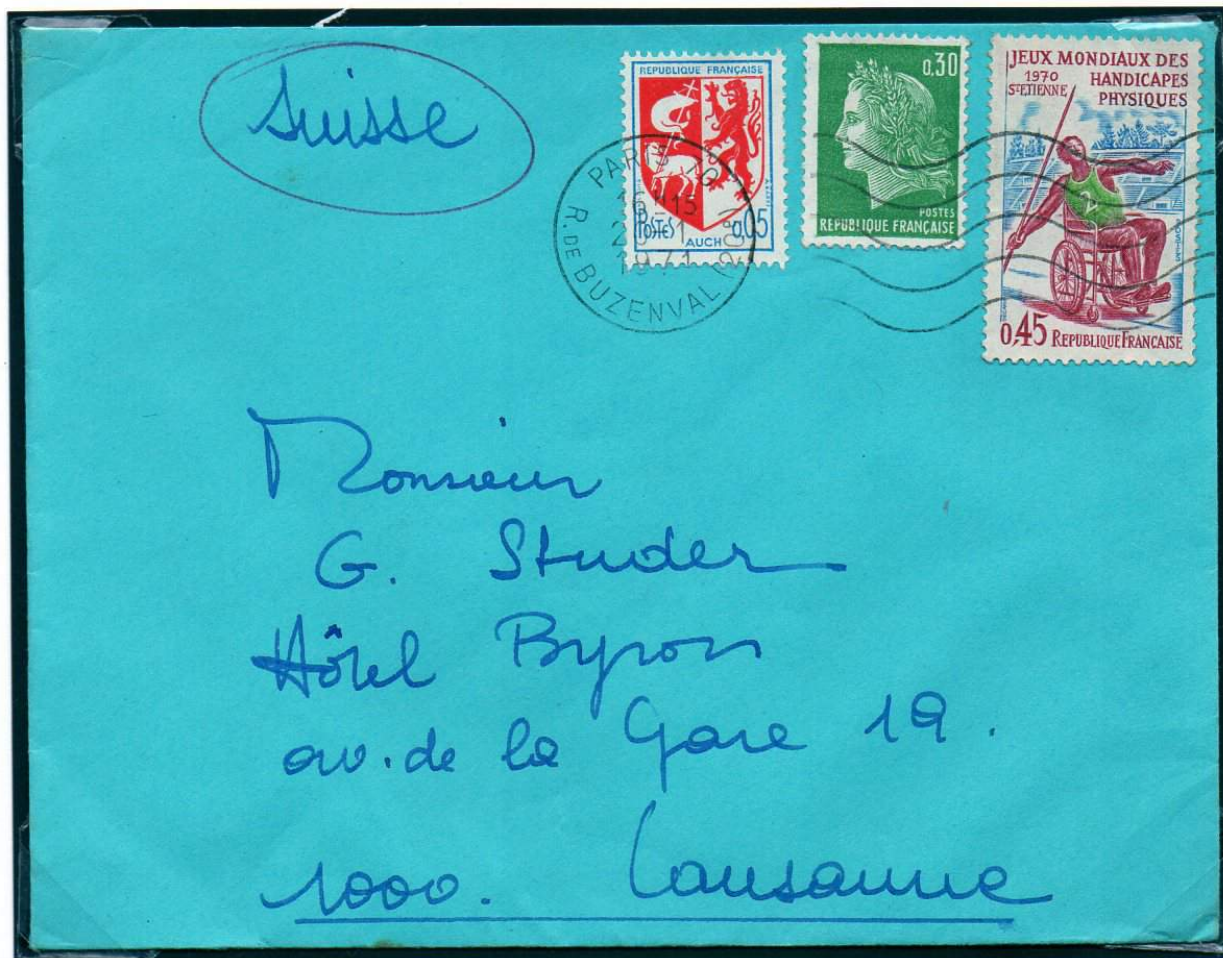 Suisse
REPUBLIQUE FRANÇAISE
POSTES 0,05
AUCH
0,30
POSTES
REPUBLIQUE FRANÇAISE
JEUX MONDIAUX DES
HANDICAPES
PHYSIQUES
1970
ST ETIENNE
0,45 REPUBLIQUE FRANÇAISE
PARIS
R. DE BUZENVAL
Monsieur
G. Studer
Hôtel Byron
av. de la Gare 19.
1000. Lausanne